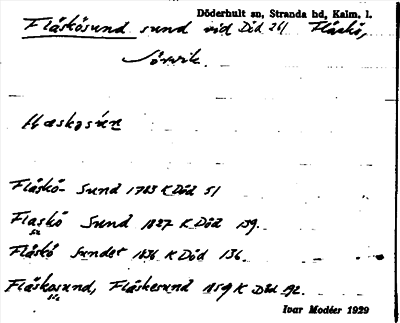 Döderhult sn, Stranda hd, Kalm. l.
Fläskösund sund vid Död 261 Fläskö,
Sörvik.
Fläskö- Sund 1783 K Död 51
Flaskö Sund 1827 K Död 159.
Flåskö Sundet 1836 K Död 136.
Fläskosund, Fläskesund 1859 K Död 92.
Ivar Modéer 1929